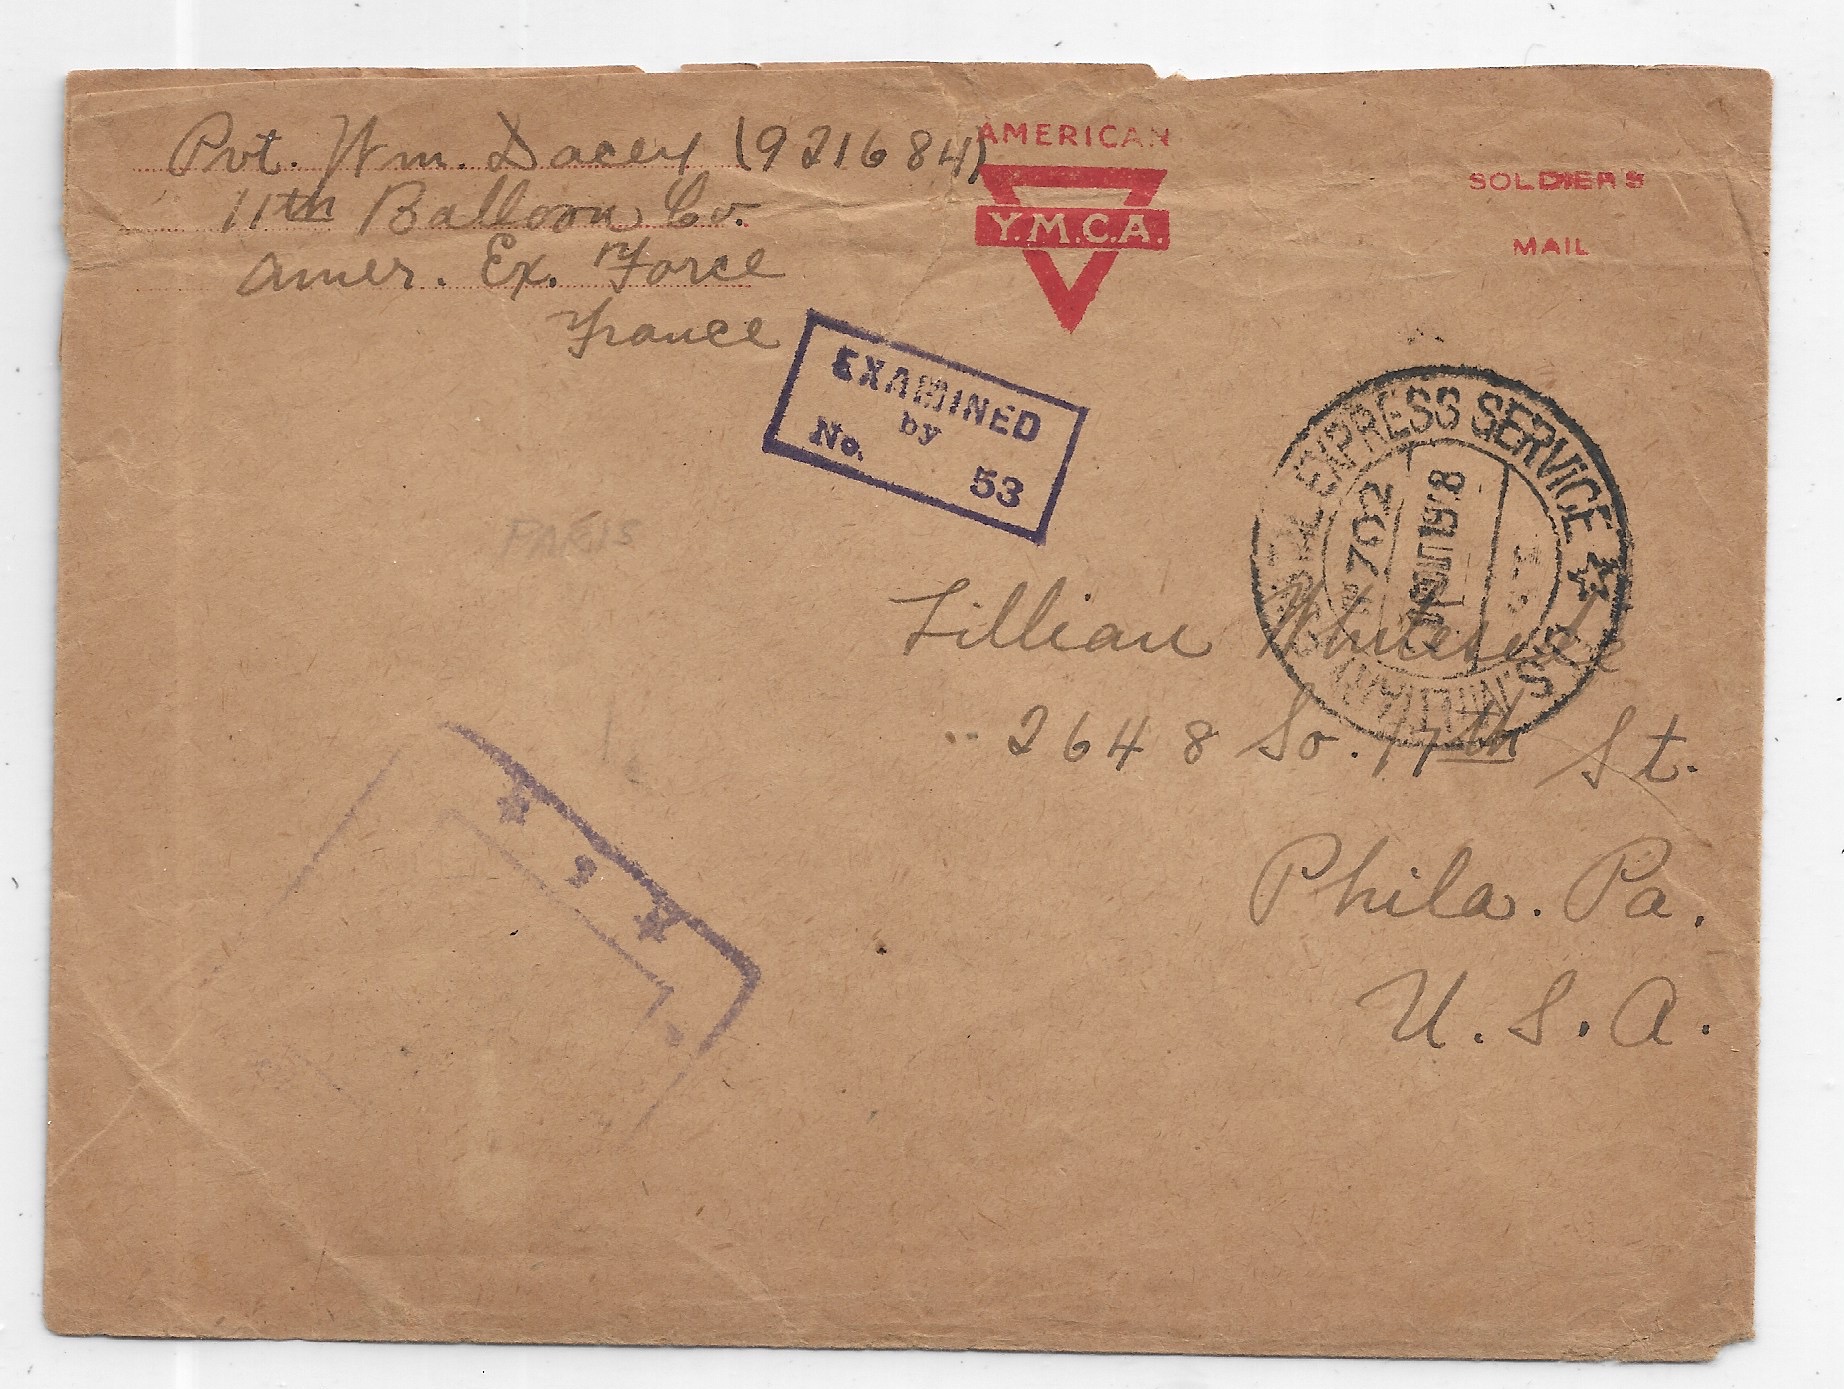 Pvt. Wm. Dacey (921684)
11th Balloon Co.
Amer. Ex. Force
France
AMERICAN
Y.M.C.A.
SOLDIERS
MAIL
EXAMINED
by
No. 53
EXPRESS SERVICE
702
PARIS
Lillian Whiteside
2648 So. 17th St.
Phila. Pa.
U.S.A.